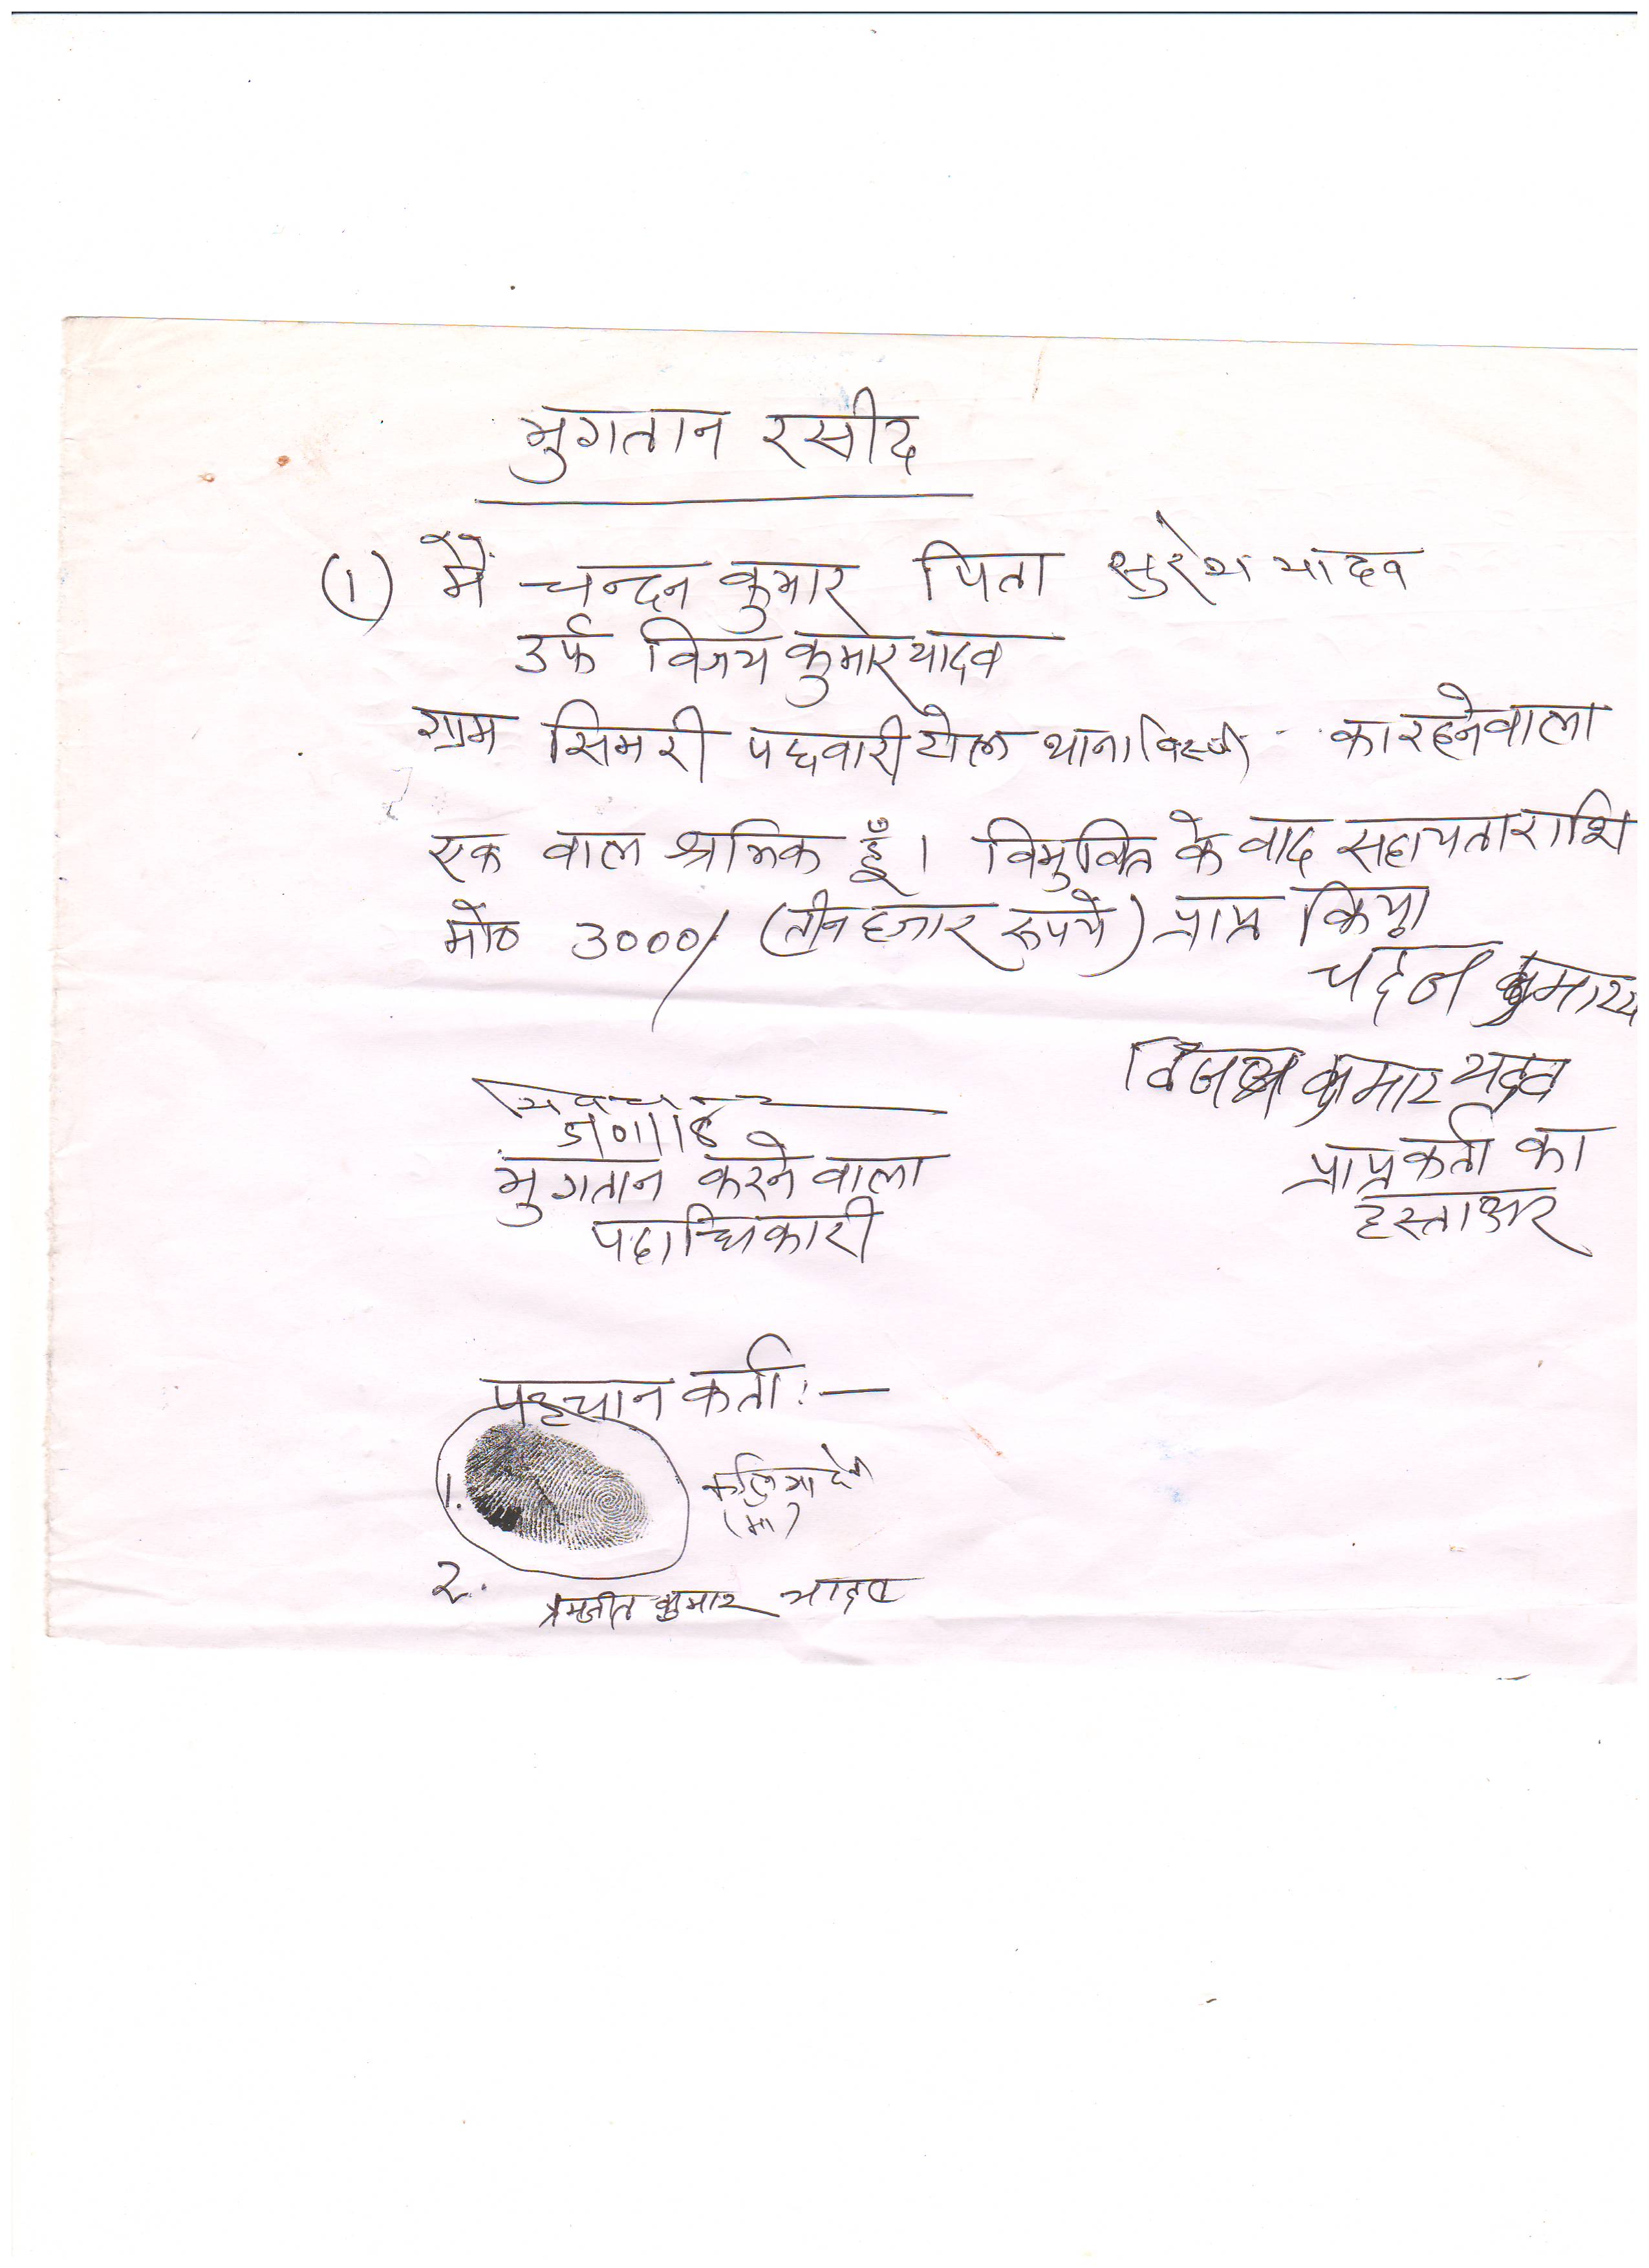 भुगतान रसीद
(1) मैं चन्दन कुमार पिता सुरेश यादव
उर्फ विजय कुमार यादव
ग्राम सिमरी पछवारी टोल थाना का रहनेवाला
एक वाल श्रमिक हूँ। विमुक्ति के वाद सहायता राशि
मो० 3000/ (तीन हजार रूपये) प्राप्त किया
चदन कुमार
विजय कुमार यादव
प्राप्तकर्ता का
हस्ताक्षर
भुगतान करने वाला
पदाधिकारी
पहचान कर्ता:—
1.
(मां)
2.
कुमार यादव